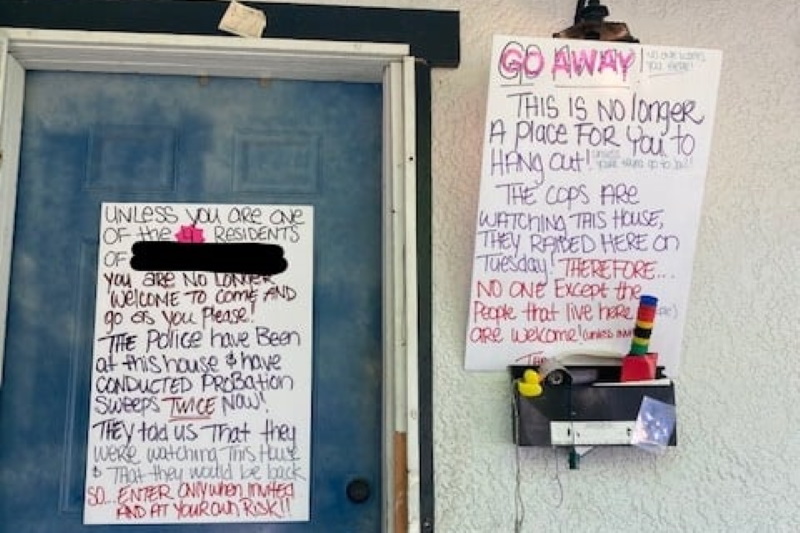 UNLESS YOU ARE ONE
OF the 4 RESIDENTS
OF
you ARE NO LONGER
WELCOME TO COME AND
go as you Please!
THE Police have Been
at this house & have
CONDUCTED PROBATION
SWEEPS TWICE NOW!
THEY told us That they
were watching This House
& That they would be back
SO... ENTER ONLY when INVITED
AND AT YOUR OWN RISK!!
GO AWAY
NO ONE
YOU HERE!
THIS IS NO longer
A place FOR You to
HANG OUT! unless
to
THE COPS ARE
WATCHING THIS HOUSE,
THEY RAIDED HERE ON
Tuesday! THEREFORE...
NO ONE Except the
People that live here
ARE welcome! (unless